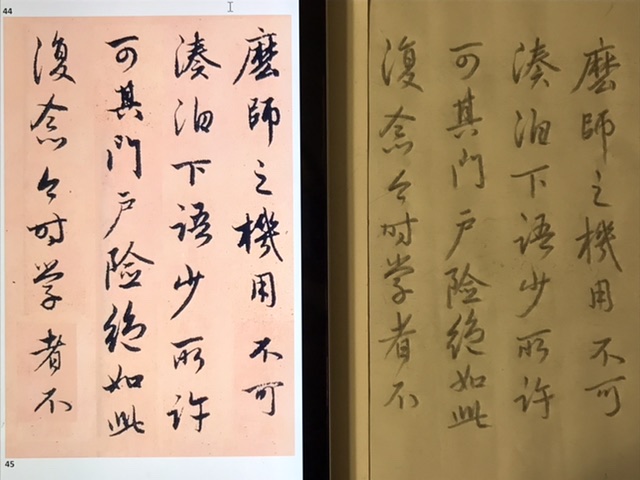 44
麽師之機用不可
湊泊下語少所許
可其門戶險絶如此
復念今时学者不
45
麽師之機用不可
湊泊下語少所許
可其門戶險絶如此
復念今时学者不